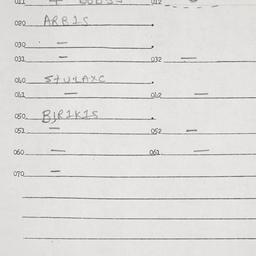 011 012
020 ARBIS
030 —
031 — 032 —
040 STULAXC
041 — 042 —
050 BJRIKIS
051 — 052 —
060 — 061 —
070 —